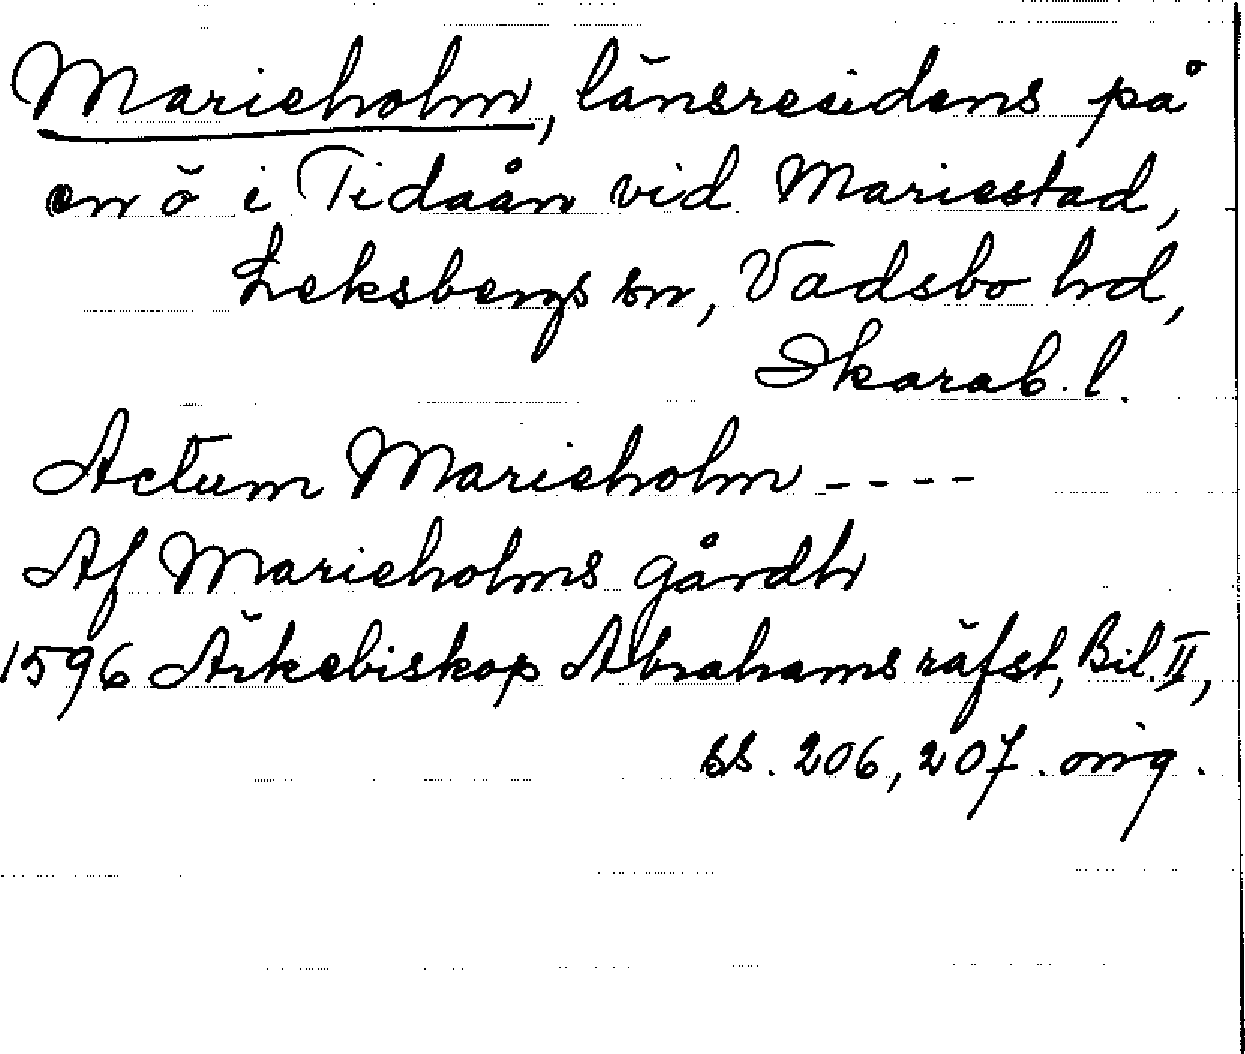 Marieholm, länsresidens på
en ö i Tidaån vid Mariestad,
Leksbergs sn, Vadsbo hd,
Skarab. l.
Actum Marieholm - - - -
Af Marieholms gårdh
1596 Ärkebiskop Abrahams räfst, Bil. II,
ss. 206, 207. orig.